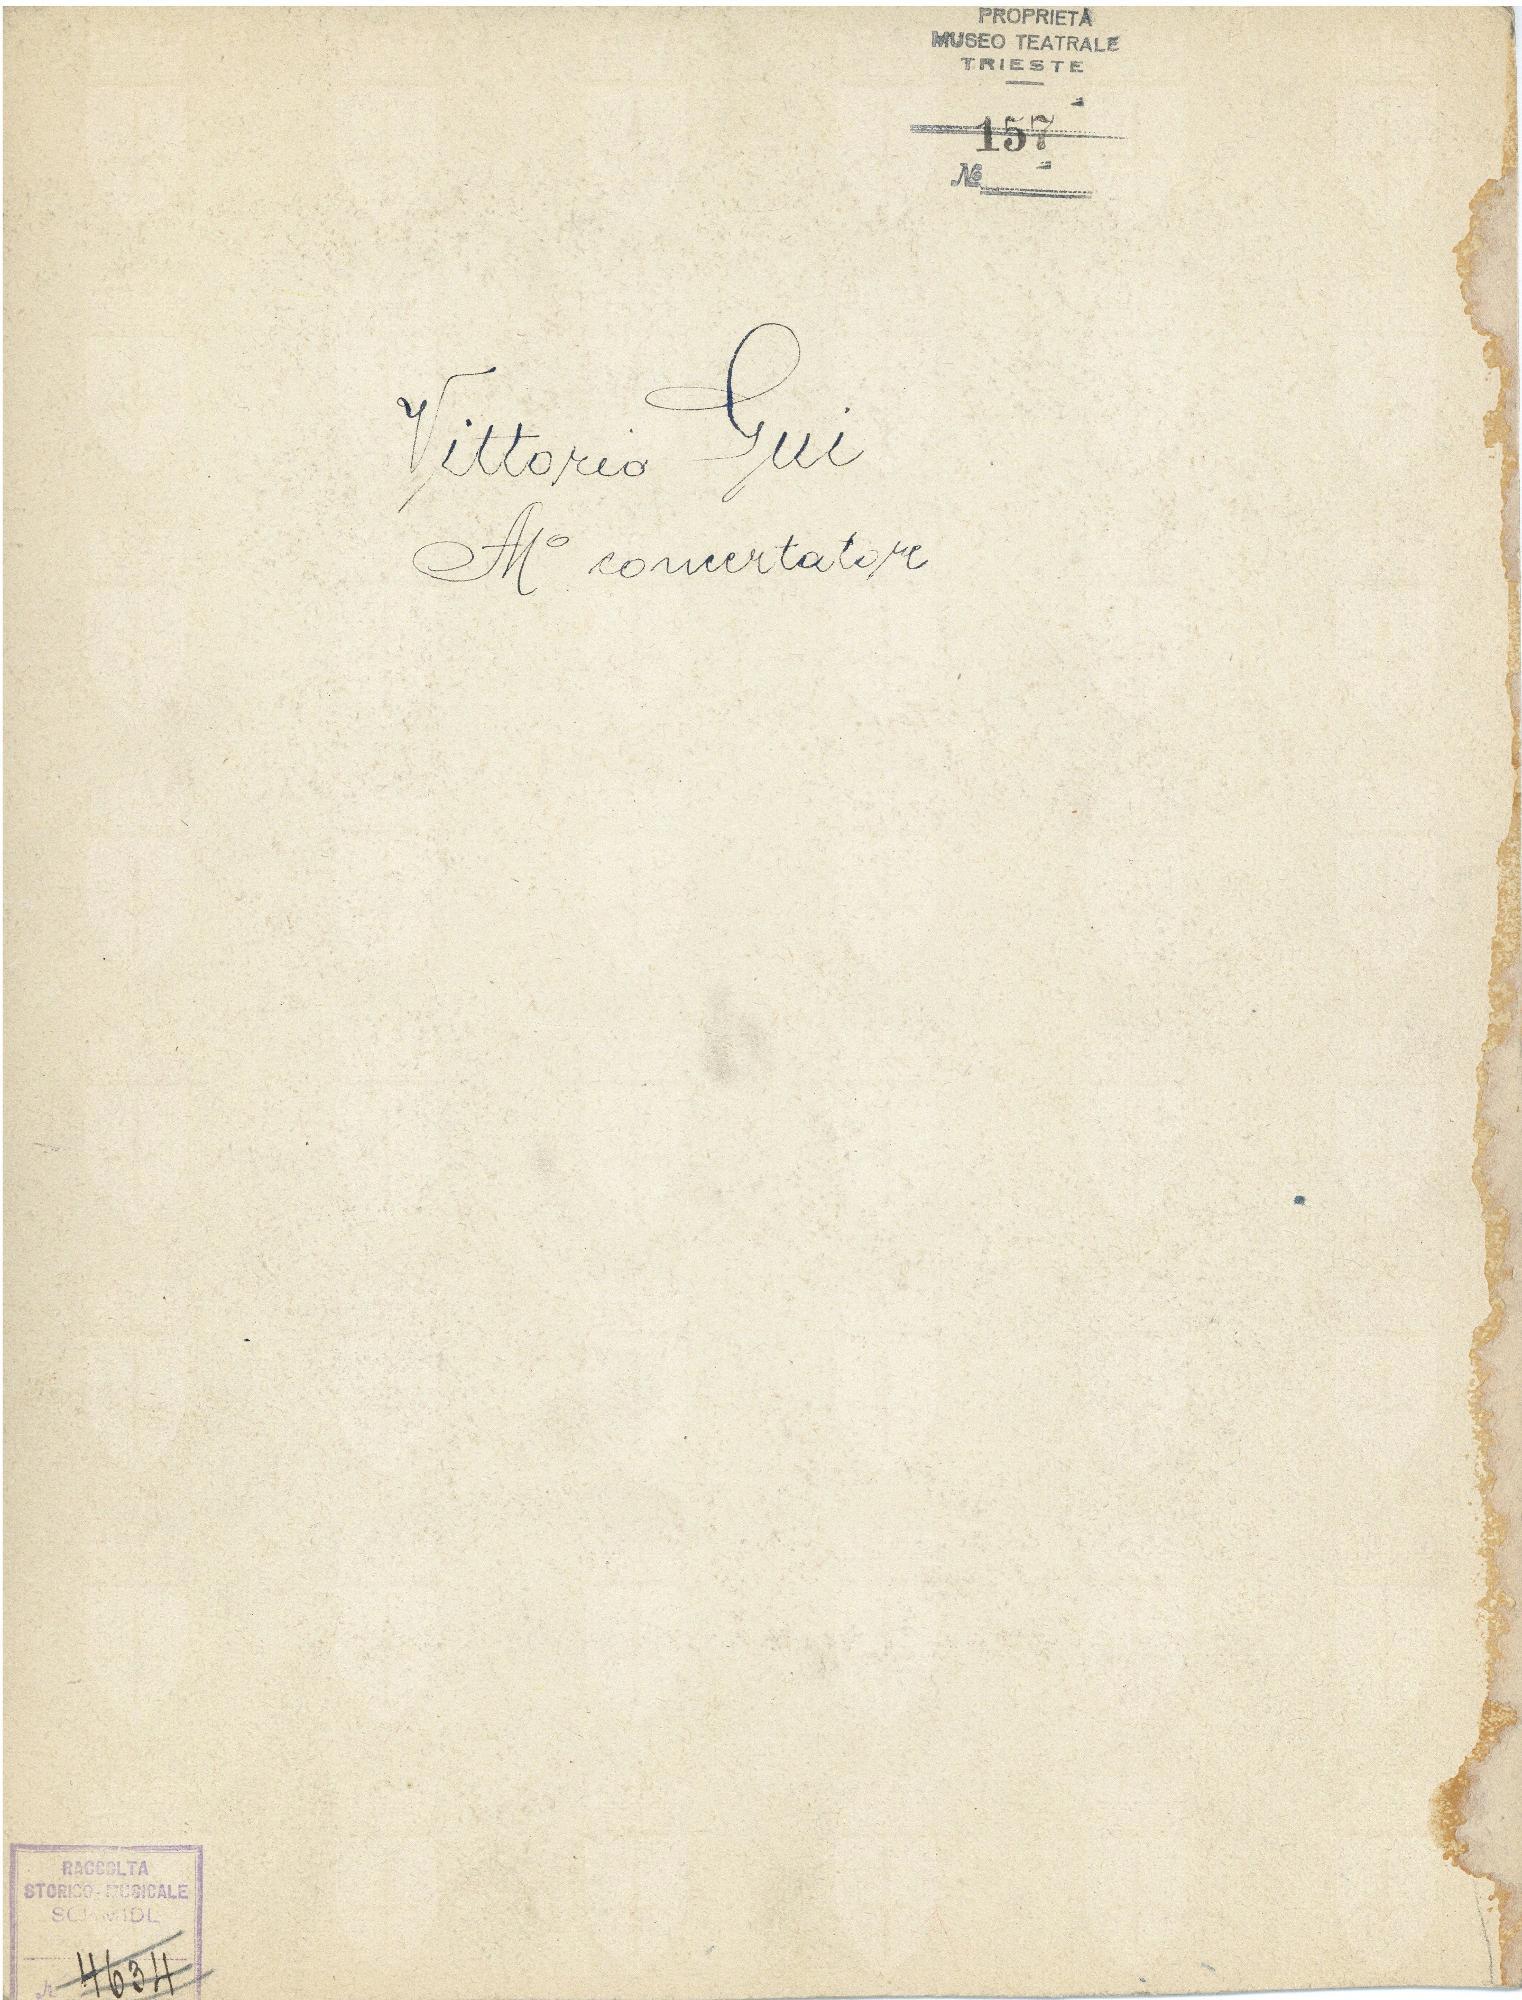 PROPRIETÀ
MUSEO TEATRALE
TRIESTE
157
№
Vittorio Gui
Mº concertatore
RACCOLTA
STORICO-MUSICALE
SCHMIDL
N 4634